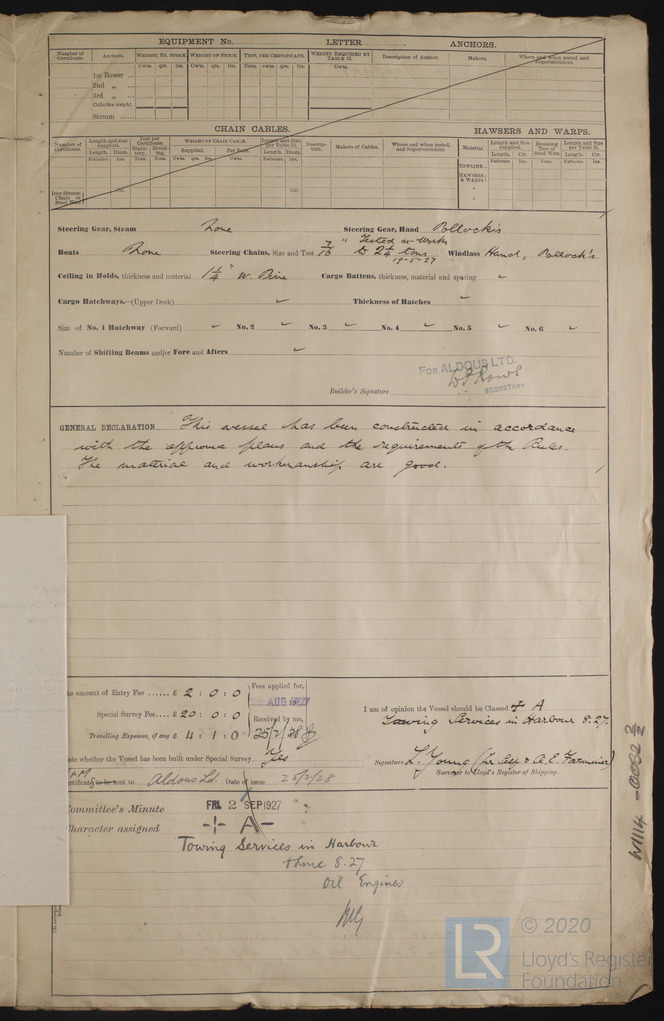 EQUIPMENT No. LETTER ANCHORS.
Number of Certificate. Anchors. WEIGHT, EX. STOCK. WEIGHT OF STOCK. TEST, PER CERTIFICATE. WEIGHT REQUIRED BY TABLE 53. Description of Anchor. Makers. Where and when tested and Superintendent.
Cwts. qrs. lbs. Cwts. qrs. lbs. Tons. cwts. qrs. lbs. Cwts.
1st Bower ...
2nd „ ...
3rd „ ...
Collective weight.
Stream ...
CHAIN CABLES. HAWSERS AND WARPS.
Number of Certificate. Length and size supplied. Test per Certificate. WEIGHT OF CHAIN CABLE. Length and Size per Table 53. Description. Makers of Cables. Where and when tested, and Superintendent. Material Length and Size supplied. Breaking Test of Steel Wire. Length and Size per Table 53.
Length. Diam. Statutory. Breaking. Supplied. Per Table. Length. Diam. Length. Cir. Length. Cir.
Fathoms Ins. Tons. Tons. Cwts. qrs. lbs. Cwts. Fathoms. Ins. Fathoms Ins. Tons. Fathoms. Ins.
TOWLINE
HAWSERS & WARPS
Iron Stream Chain or Steel Wire Cir. Cir.
Steering Gear, Steam None Steering Gear, Hand Pollock's
Boats None Steering Chains, Size and Test 7/16 " Tested at Works to 2 1/4 tons 19-5-27 Windlass Hand, Pollock's.
Ceiling in Holds, thickness and material 1 1/4" W. Pine Cargo Battens, thickness, material and spacing ✓
Cargo Hatchways.—(Upper Deck) ✓ Thickness of Hatches ✓
Size of No. 1 Hatchway (Forward) ✓ No. 2 ✓ No. 3 ✓ No. 4 ✓ No. 5 ✓ No. 6 ✓
Number of Shifting Beams and/or Fore and Afters ✓
For ALDOUS LTD.
Builder's Signature
SECRETARY
GENERAL DECLARATION This vessel has been constructed in accordance
with the approved plans and the requirements of the Rules.
The material and workmanship are good.
he amount of Entry Fee ...... £ 2 : 0 : 0 Fees applied for,
AUG 1927
Special Survey Fee... £ 20 : 0 : 0 Received by me,
Travelling Expenses, if any £ 4 : 1 : 0 25/2/28
I am of opinion the Vessel should be Classed + A
Towing Services in Harbour 8.27.
ate whether the Vessel has been built under Special Survey Yes
Signature L. Young (for self & A. E. Farminer)
Surveyor to Lloyd's Register of Shipping.
ertificate to be sent to Aldous Ld. Date of issue 25/2/28
ommittee's Minute FRI. 2 SEP 1927
haracter assigned + A —
Towing Services in Harbour
8.27
Oil Engines
W1114-0082 2/2
LR © 2020
Lloyd's Register
Foundation